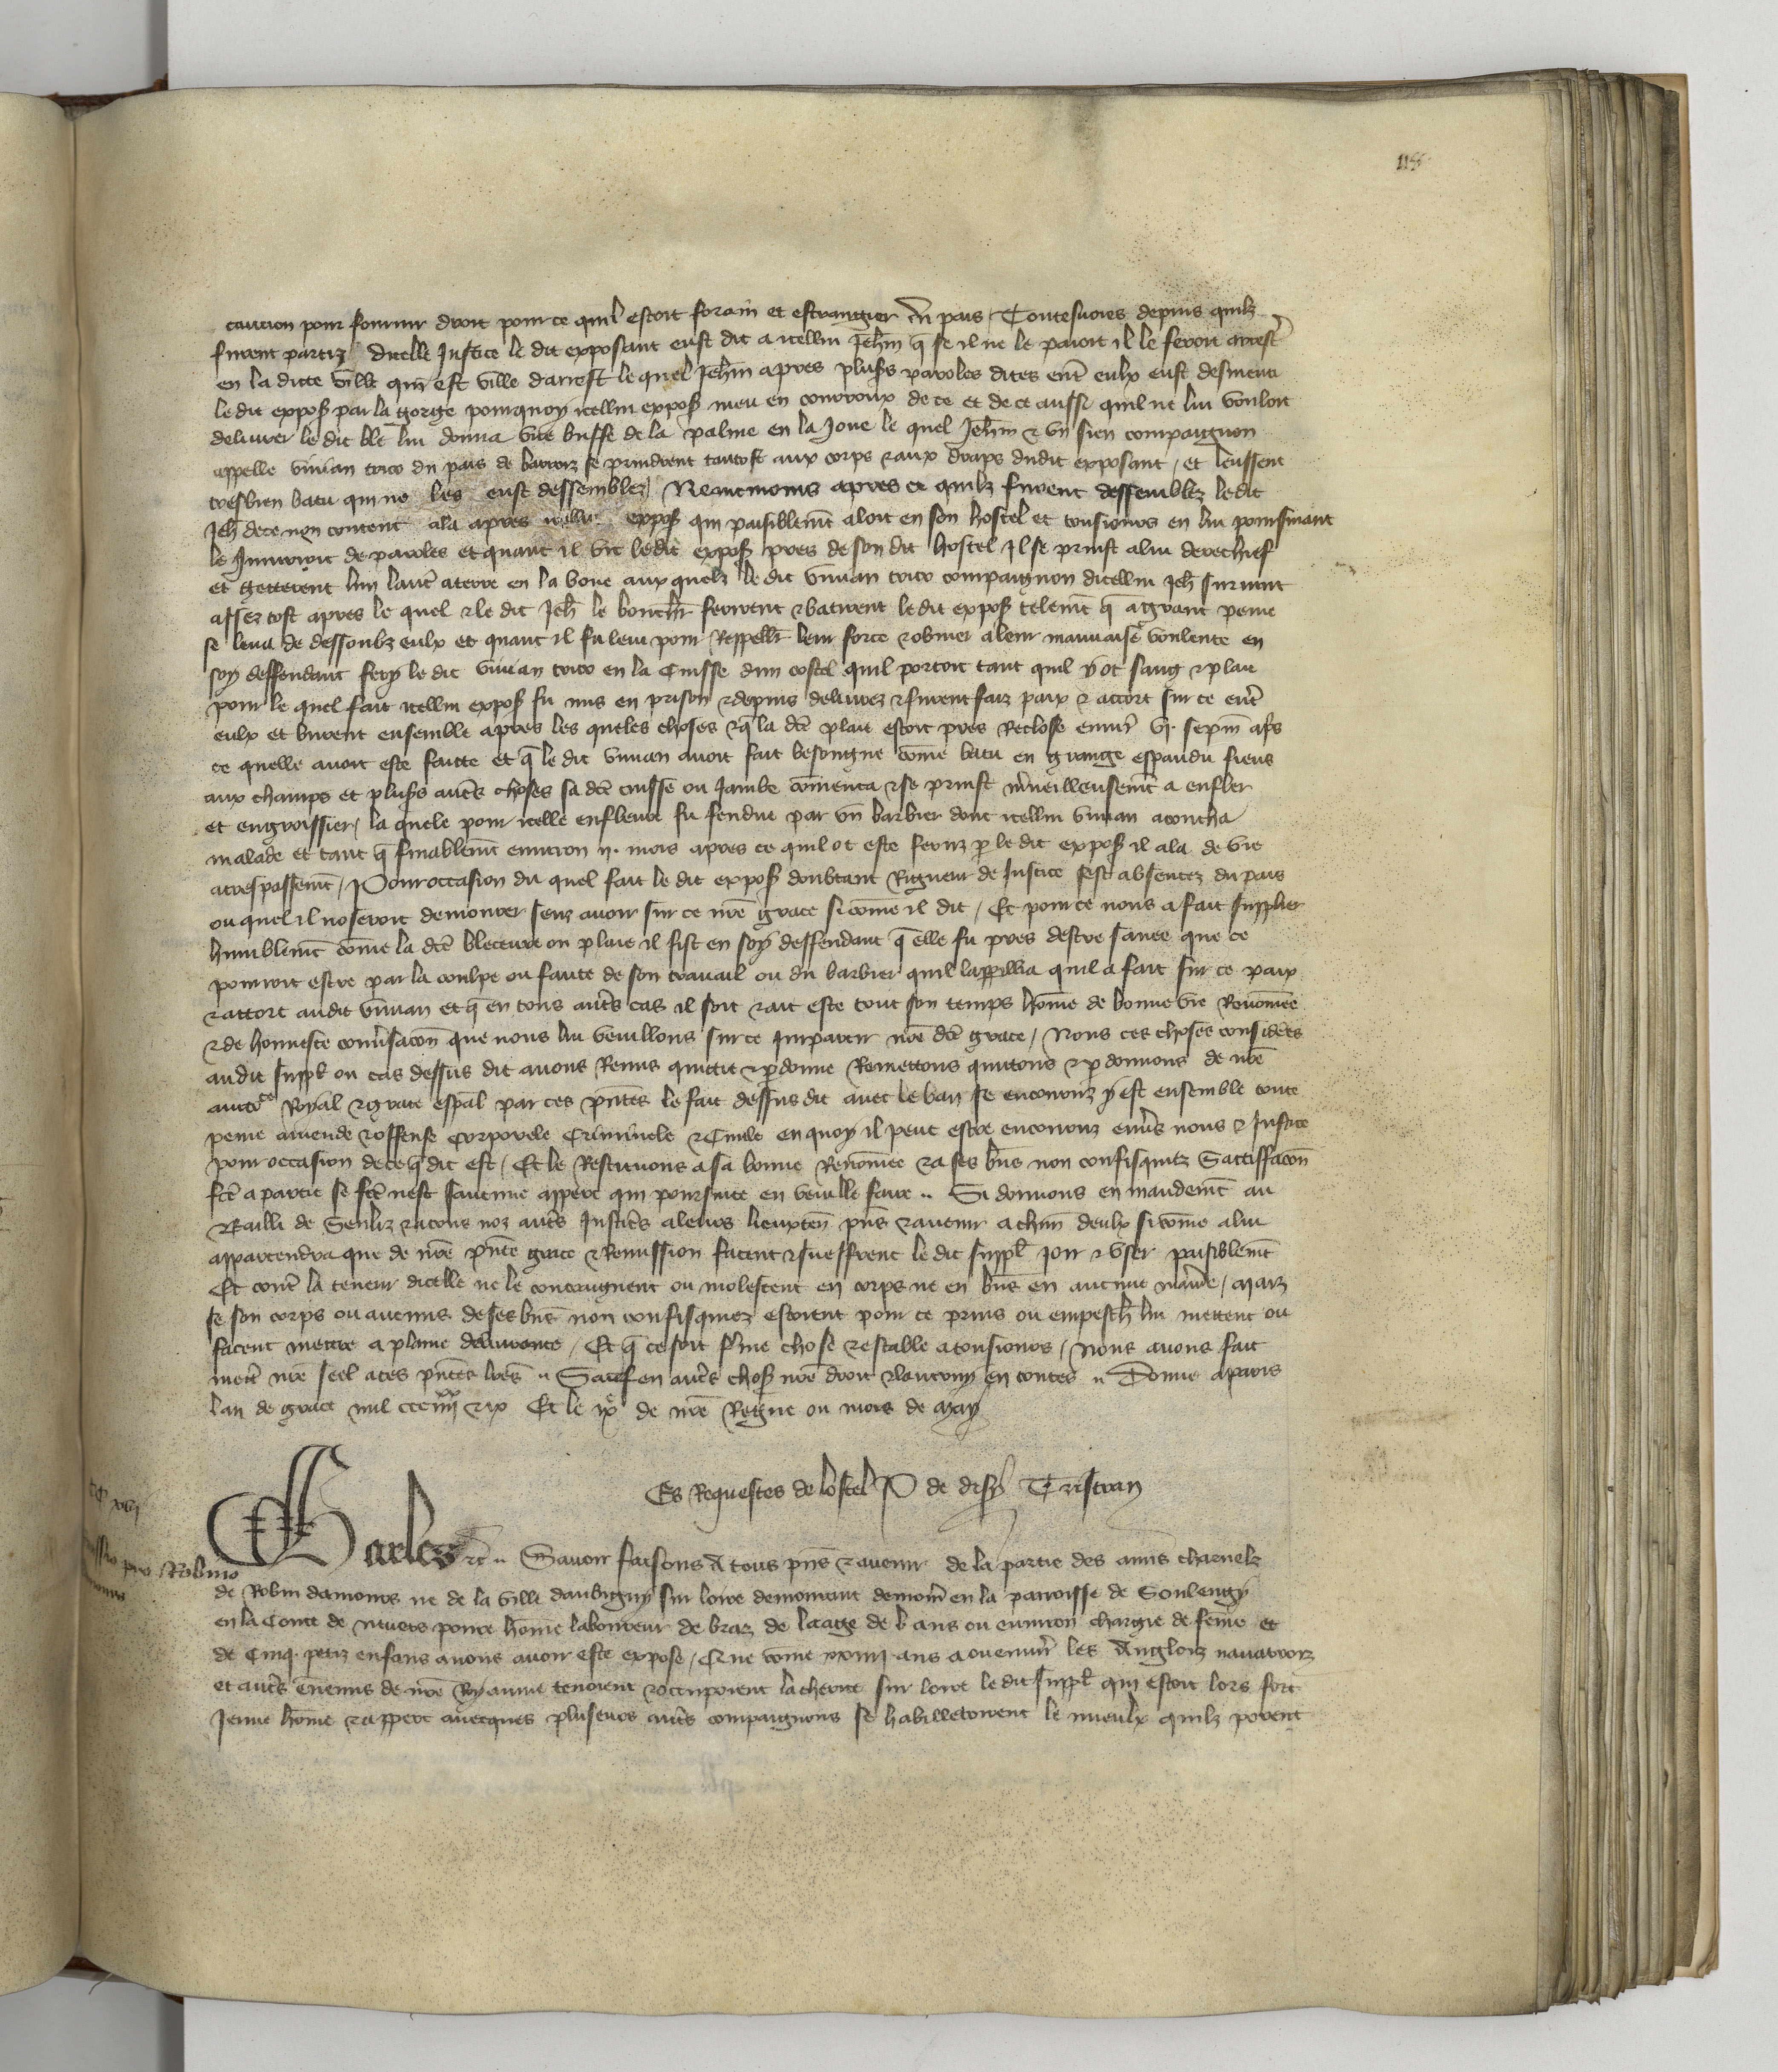 115
caucion pour fournir droit pour ce quil estoit forain et estrangier du pais / Toutesvoies depuis quilz
furent partiz dicelle Justice le dit exposant eust dit a icellui Jehan q̄ se il ne le paioit il le feroit arrest̄
en la dicte ville qui est ville darrest le quel Jehan apres plus̄s paroles dites ent̄ eulx eust desmenti
le dit expos̄ par la gorge pourquoy icellui expos̄ meu en courroux de ce et de ce aussi quil ne lui vouloit
delivrer le dit blé lui donna une buffe de la palme en la Joue le quel Jeh̄n & un sien compaignon
appelle vivian du pais de se prindrent tantost aux corps & aux draps dudit exposant / et leussent
tresbien batu qui ne les eust dessemblez / Neantmoins apres ce quilz furent dessemblez ledit
Jeh̄ de ce non content ala apres icellui expos̄ qui paisiblem̄t aloit en son hostel et tousiours en lui poursuiant
le Iniurioit de paroles et quant il vit ledit expos̄ pres de son dit hostel Il se prinst a lui derechief
et getterent lun laut̄ a terre en la boue aux quelz le dit vivian compaignon dicellui Jeh̄ survint
assez tost apres le quel & le dit Jeh̄ le ferirent & batirent ledit expos̄ telem̄t q̄ a grant peine
se leva de dessoubz eulx et quant il fu levé pour Reppell̄ leur force & obvier a leur mauvaise voulente en
soy deffendant fery le dit vivian en la Cuisse dun costel quil portoit tant quil y ot sang & plaie
pour le quel fait icellui expos̄ fu mis en prison & depuis delivrez & furent faiz paix & accort sur ce ent̄
eulx et burent ensemble apres les queles choses & q̄ la dc̄e plaie estoit pres Reclose envir̄ vj. sepm̄ ap̄s
ce quelle avoit este faicte et q̄ le dit vivian avoit fait besongne com̄e batu en grange espandu fiens
aux champs et plus̄s aut̄s choses sa dc̄e cuisse ou Jambe com̄enca & se prinst m̄veilleusem̄t a enfler
et engroissier / la quele pour icelle enfleure fu fendue par un barbier dont icellui vivian acoucha
malade et tant q̄ finablem̄t environ ij. mois apres ce quil ot este feruz p̄ le dit expos̄ il ala de vie
a trespassem̄t / Pour occasion du quel fait le dit expos̄ doubtant Rigueur de Justice sest absentez du pais
ou quel il noseroit demourer senz avoir sur ce nr̄e grace si com̄e il dit / Et pour ce nous a fait supplier
humblem̄t com̄e la dc̄e bleceure ou plaie il fist en soy deffendant q̄ elle fu pres destre sanee que ce
pourroit estre par la coulpe ou faute de son travail ou du barbier quil quil a fait sur ce paix
& accort audit vivian et q̄ en tous aut̄s cas il soit & ait este tout son temps hom̄e de bonne vie Renom̄ee
& de honneste conv̄sacōn que nous lui veuillons sur ce Impartir nr̄e dc̄e grace / Nous ces choses considēes
audit suppl̄ ou cas dessus dit avons Remis quictie & p̄donne Remettons quittons & p̄donnons de nr̄e
auctōce Royal & grace esp̄al par ces p̄ntes le fait dessus dit avec le ban se encouruz y est ensemble toute
peine amende & offense corporele Criminele & Civile en quoy il peut estre encouruz env̄s nous & Justice
pour occasion de ce q̄ dit est / Et le Restituons a sa bonne Renom̄ee & a ses bn̄s non confisquiez Satisffacōn
fc̄e a partie se fc̄e nest qui poursuite en veuille faire .. Si donnons en mandem̄t au
Bailli de Senliz & a tous noz aut̄s Justic̄s a leurs lieuxten̄ p̄ns & avenir a chūn deulx si com̄e a lui
appartendra que de nr̄e p̄nte grace & Remission facent & sueffrent le dit suppl̄ Joir & user paisiblem̄t
Et cont̄ la teneur dicelle ne le contraignent ou molestent en corps ne en bn̄s en aucune man̄e / Maiz
se son corps ou aucuns de ses bn̄s non confisquiez estoient pour ce prins ou empesch̄ lui mettent ou
facent mettre a plaine delivrance / Et q̄ ce soit f̄me chose & estable a tousiours / Nous avons fait
mett̄ nr̄e seel a ces p̄ntes lr̄es .. Sauf en aut̄s chos̄ nr̄e droit & lautruy en toutes .. Donne a paris
lan de grace mil ccc iiijxx & ix Et le ixe de nr̄e Regne ou mois de may
Es Requestes de lostel P de
Charles &c̄ .. Savoir faisons A tous p̄ns & avenir de la partie des amis charnelz
pro Robino
de Robin damours ne de la ville daubigny sur loire demourant en la parroisse de Soulengy
en la Conte de Nevers povre hom̄e laboureur de braz de laage de l ans ou environ chargie de fem̄e et
de Cinq petiz enfans avons avoir este expose / Que com̄e xxiiij ans a ou envir̄ les Anglois navarrois
et aut̄s ēnemis de nr̄e Royaume tenoient & occupoient la charite sur loire le dit suppl̄ qui estoit lors fort
Jeune hom̄e & appert avecques pluseurs aut̄s compaignons se habilleterent le mieulx quilz porent